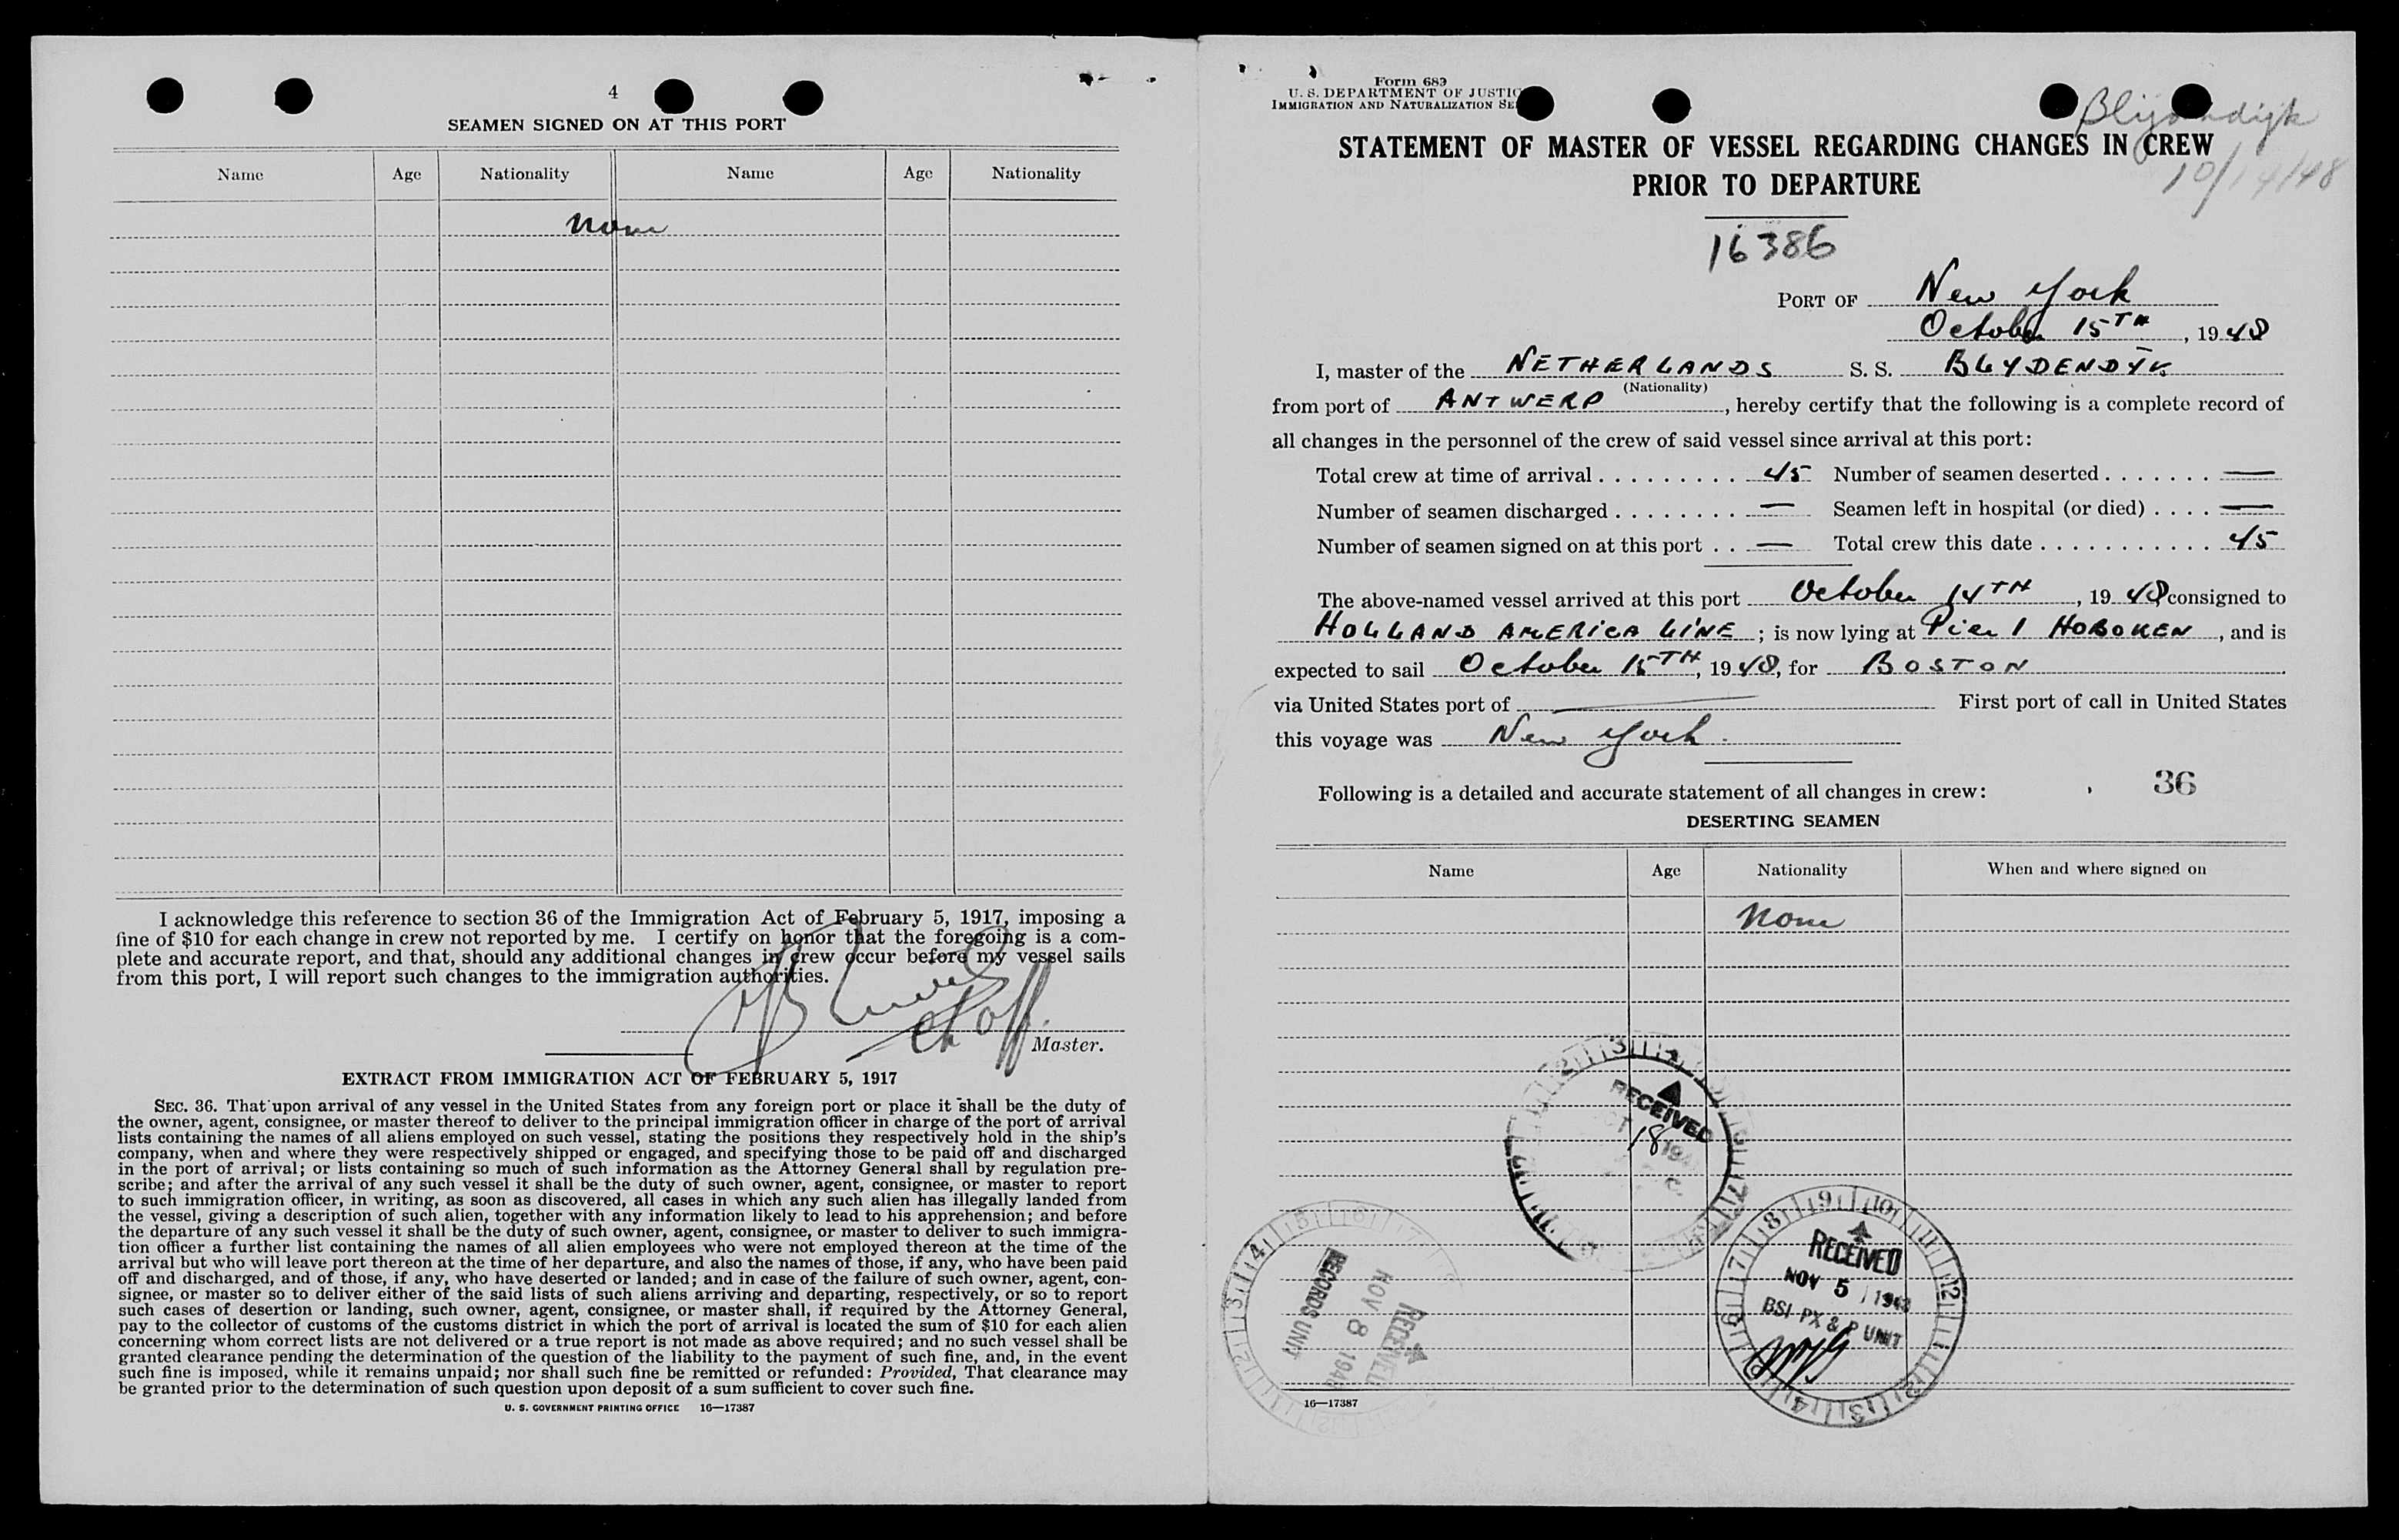 4
SEAMEN SIGNED ON AT THIS PORT
Name Age Nationality Name Age Nationality
None
I acknowledge this reference to section 36 of the Immigration Act of February 5, 1917, imposing a
fine of $10 for each change in crew not reported by me. I certify on honor that the foregoing is a com-
plete and accurate report, and that, should any additional changes in crew occur before my vessel sails
from this port, I will report such changes to the immigration authorities.
ch off.
Master.
EXTRACT FROM IMMIGRATION ACT OF FEBRUARY 5, 1917
SEC. 36. That upon arrival of any vessel in the United States from any foreign port or place it shall be the duty of
the owner, agent, consignee, or master thereof to deliver to the principal immigration officer in charge of the port of arrival
lists containing the names of all aliens employed on such vessel, stating the positions they respectively hold in the ship's
company, when and where they were respectively shipped or engaged, and specifying those to be paid off and discharged
in the port of arrival; or lists containing so much of such information as the Attorney General shall by regulation pre-
scribe; and after the arrival of any such vessel it shall be the duty of such owner, agent, consignee, or master to report
to such immigration officer, in writing, as soon as discovered, all cases in which any such alien has illegally landed from
the vessel, giving a description of such alien, together with any information likely to lead to his apprehension; and before
the departure of any such vessel it shall be the duty of such owner, agent, consignee, or master to deliver to such immigra-
tion officer a further list containing the names of all alien employees who were not employed thereon at the time of the
arrival but who will leave port thereon at the time of her departure, and also the names of those, if any, who have been paid
off and discharged, and of those, if any, who have deserted or landed; and in case of the failure of such owner, agent, con-
signee, or master so to deliver either of the said lists of such aliens arriving and departing, respectively, or so to report
such cases of desertion or landing, such owner, agent, consignee, or master shall, if required by the Attorney General,
pay to the collector of customs of the customs district in which the port of arrival is located the sum of $10 for each alien
concerning whom correct lists are not delivered or a true report is not made as above required; and no such vessel shall be
granted clearance pending the determination of the question of the liability to the payment of such fine, and, in the event
such fine is imposed, while it remains unpaid; nor shall such fine be remitted or refunded: Provided, That clearance may
be granted prior to the determination of such question upon deposit of a sum sufficient to cover such fine.
U. S. GOVERNMENT PRINTING OFFICE 16—17387
Form 689
U. S. DEPARTMENT OF JUSTIC
IMMIGRATION AND NATURALIZATION SE
STATEMENT OF MASTER OF VESSEL REGARDING CHANGES IN CREW
PRIOR TO DEPARTURE
10/14/48
16386
PORT OF New York
October 15TH, 1948
I, master of the NETHERLANDS S. S. BLYDENDYK
(Nationality)
from port of ANTWERP, hereby certify that the following is a complete record of
all changes in the personnel of the crew of said vessel since arrival at this port:
Total crew at time of arrival 45 Number of seamen deserted —
Number of seamen discharged — Seamen left in hospital (or died) —
Number of seamen signed on at this port — Total crew this date 45
The above-named vessel arrived at this port October 14TH, 1948, consigned to
HOLLAND AMERICA LINE; is now lying at Pier 1 HOBOKEN, and is
expected to sail October 15TH, 1948, for BOSTON
via United States port of — First port of call in United States
this voyage was New York.
Following is a detailed and accurate statement of all changes in crew: 36
DESERTING SEAMEN
Name Age Nationality When and where signed on
None
RECEIVED
18
RECEIVED
NOV 5 1948
BSI-PX & P UNIT
RECEIVED
NOV 8 1948
RECORDS UNIT
16—17387